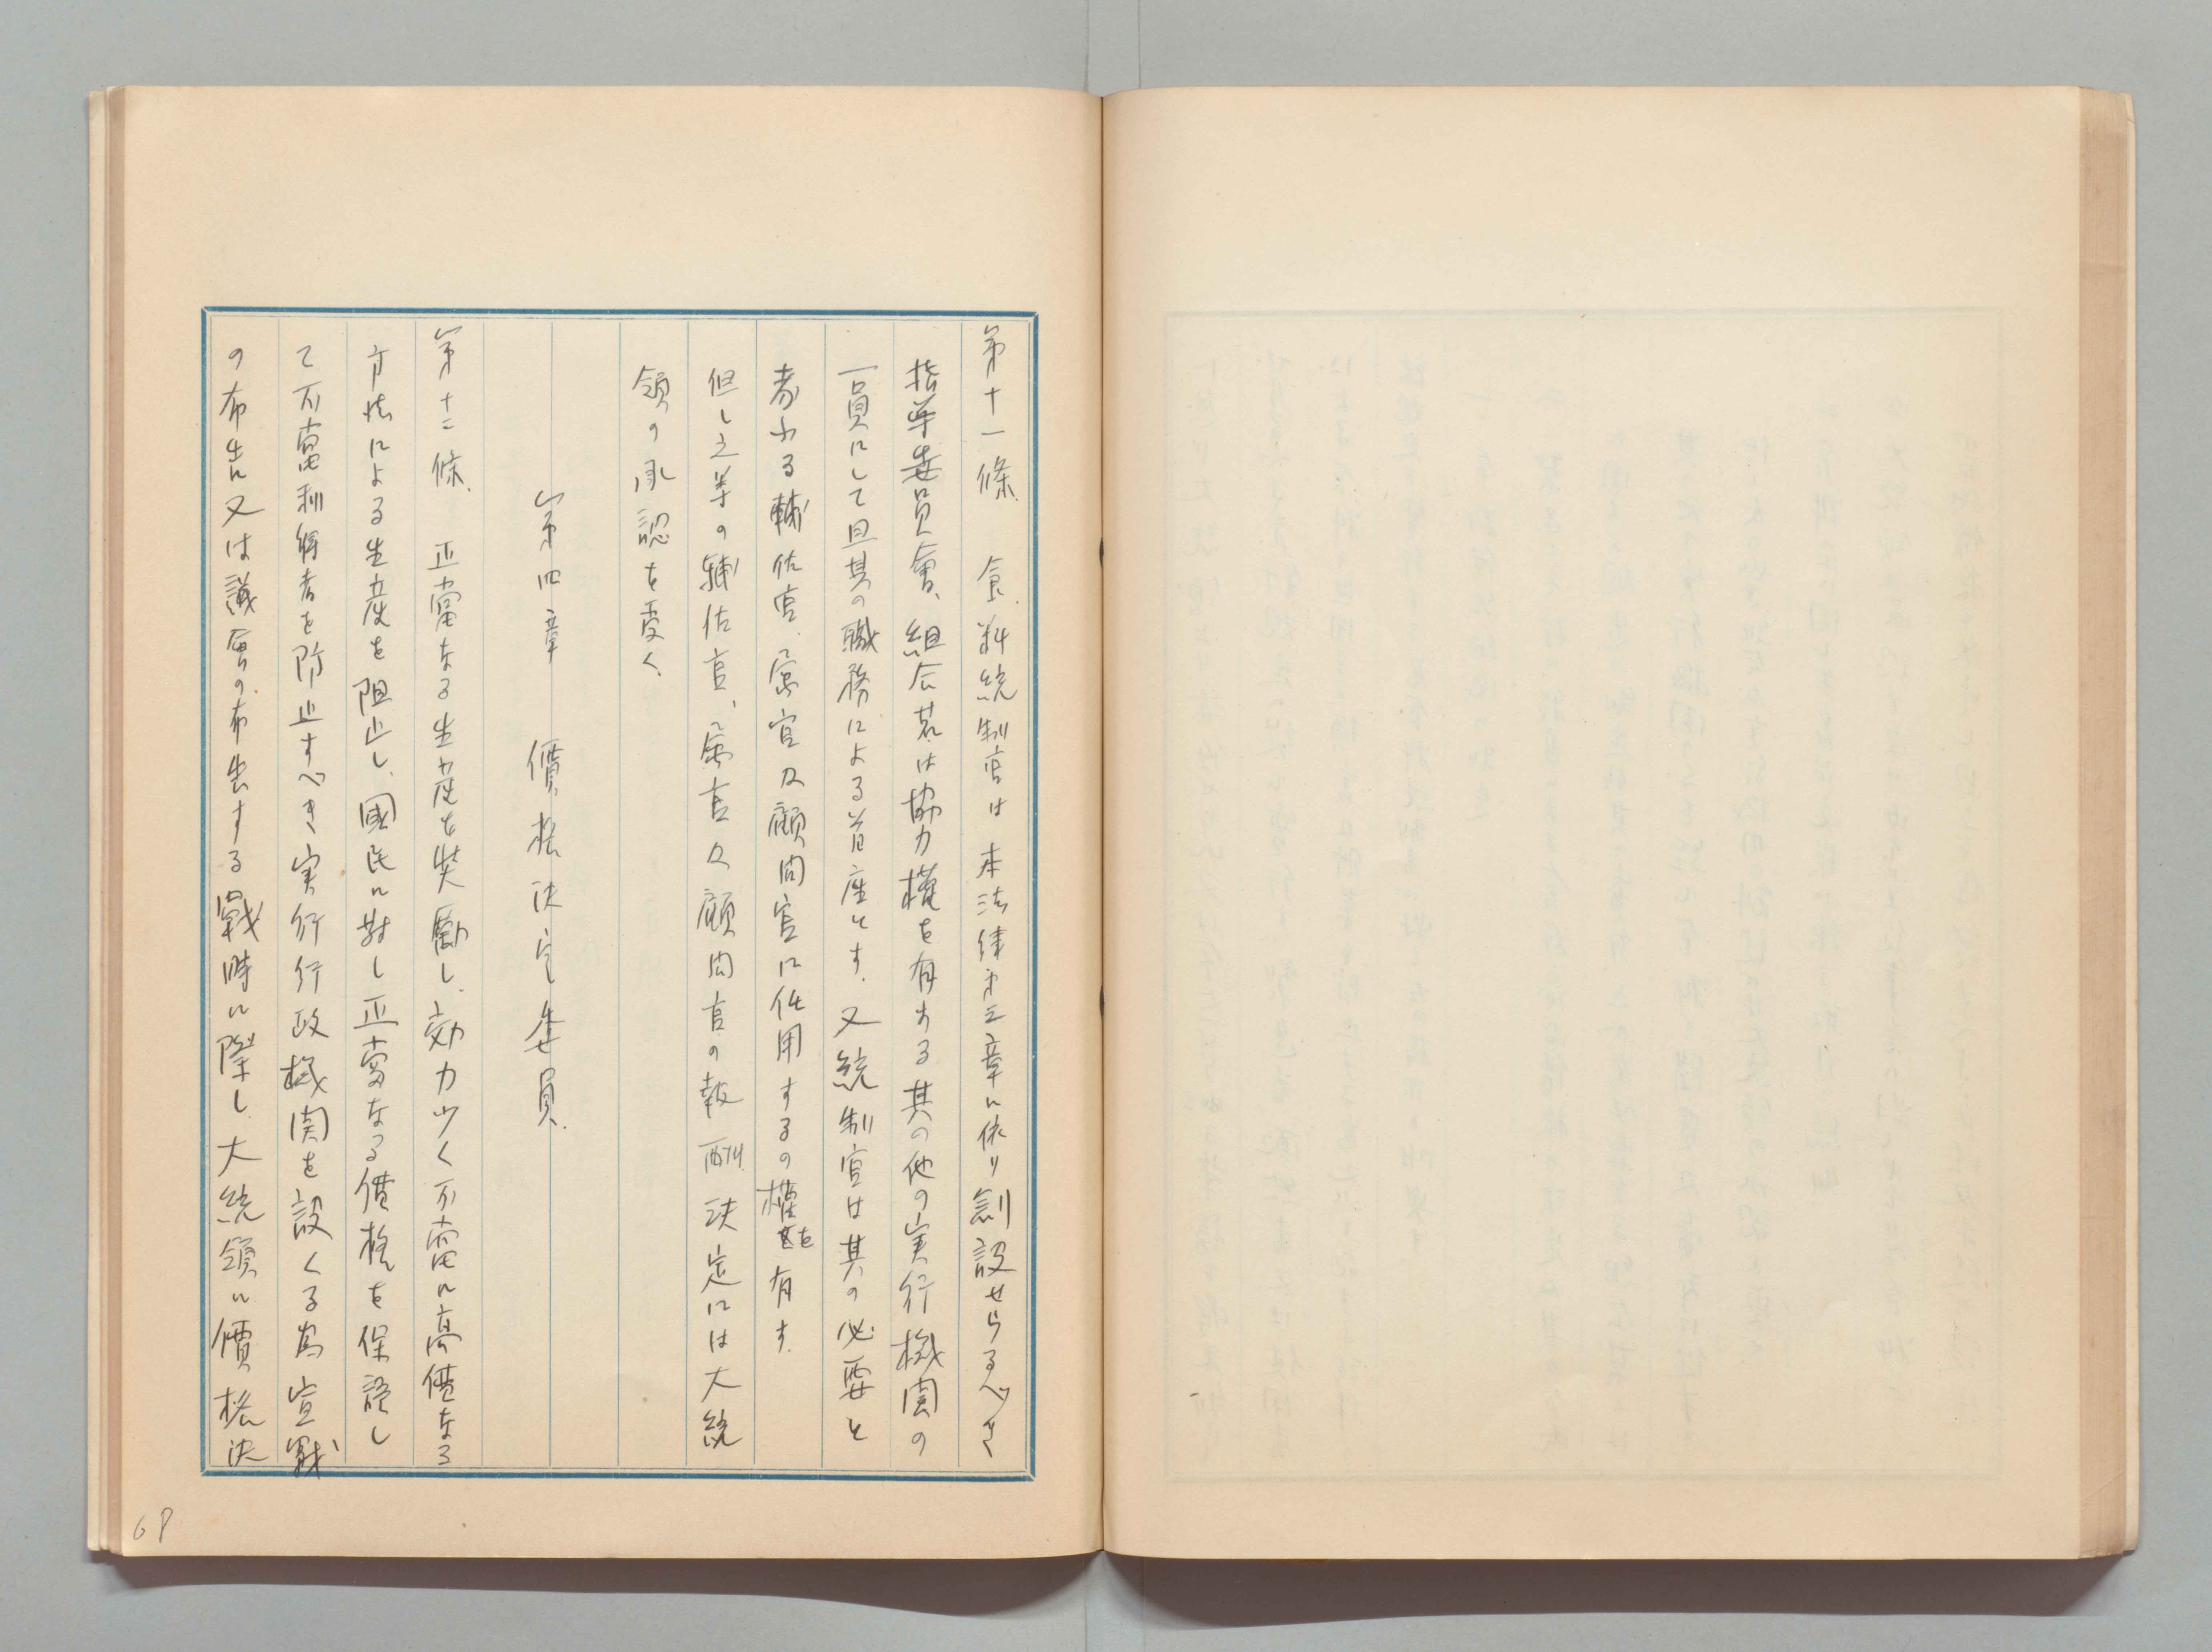 第十一條　食料統制官は本法律第三章に依り創設せらるべき
指導委員會、組合若は協力權を有する其の他の実行機関の
一員にして且其の職務による首座とす。又統制官は其の必要と
考ふる輔佐官、属官及顧問官に任用するの權を有す。
但し之等の輔佐官、属官及顧問官の報酬決定には大統
領の承認を受く
第四章　價格決定委員
第十二條　正當なる生産を奨勵し、効力少く不當に高價なる
方法による生産を阻止し、國民に對し正當なる價格を保證し
て不當利得者を防止すべき実行行政機関を設くる為宣戰
の布告又は議會の布告する戰時に際し、大統領に價格決
68